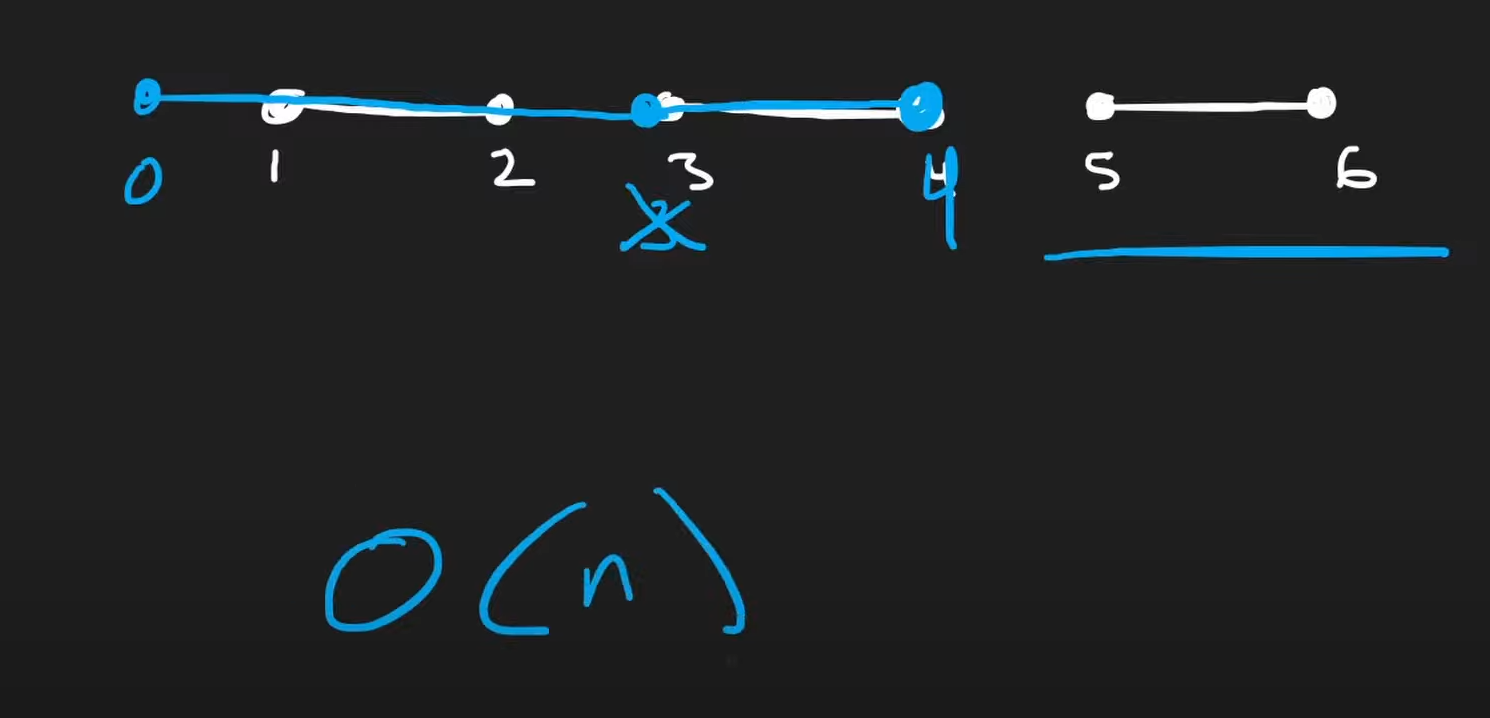 0 1 2 3 4 5 6
3
O(n)